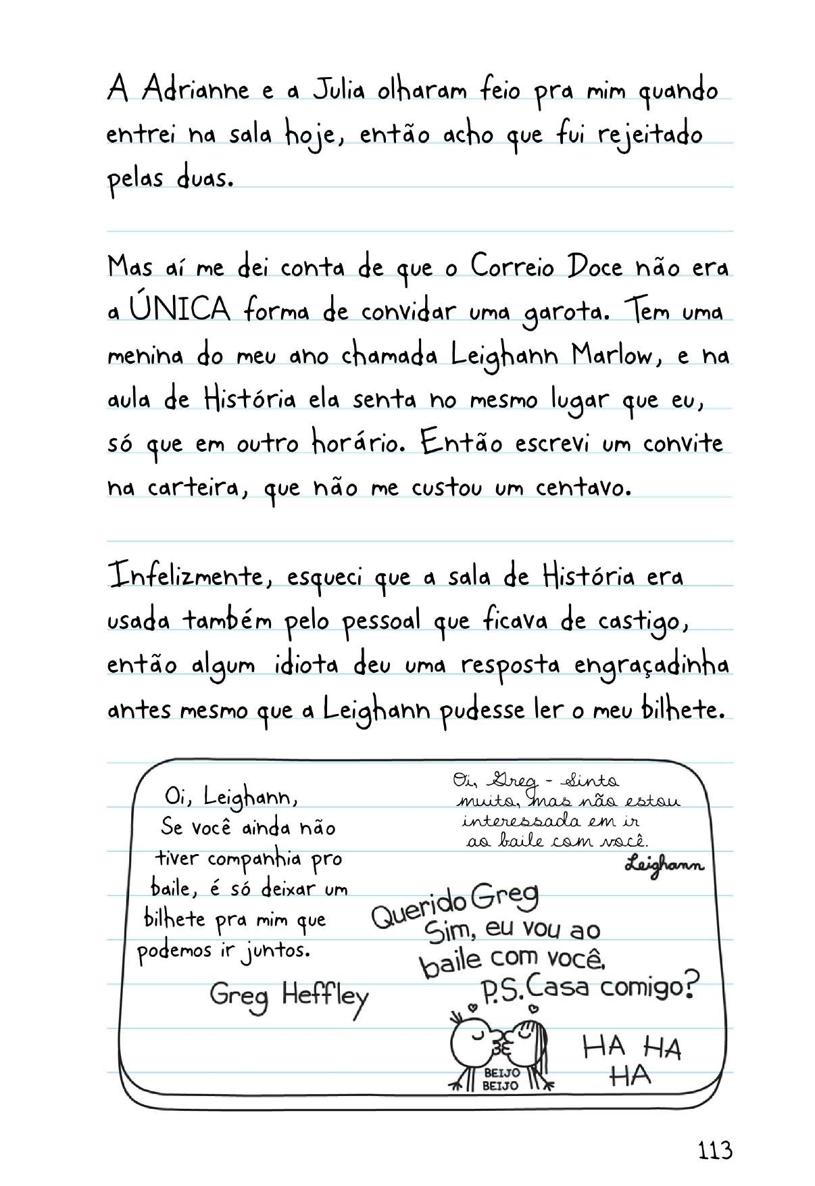 A Adrianne e a Julia olharam feio pra mim quando
entrei na sala hoje, então acho que fui rejeitado
pelas duas.
Mas aí me dei conta de que o Correio Doce não era
a ÚNICA forma de convidar uma garota. Tem uma
menina do meu ano chamada Leighann Marlow, e na
aula de História ela senta no mesmo lugar que eu,
só que em outro horário. Então escrevi um convite
na carteira, que não me custou um centavo.
Infelizmente, esqueci que a sala de História era
usada também pelo pessoal que ficava de castigo,
então algum idiota deu uma resposta engraçadinha
antes mesmo que a Leighann pudesse ler o meu bilhete.
Oi, Leighann,
Se você ainda não
tiver companhia pro
baile, é só deixar um
bilhete pra mim que
podemos ir juntos.
Greg Heffley
Oi, Greg - Sinto
muito, mas não estou
interessada em ir
ao baile com você.
Leighann
Querido Greg
Sim, eu vou ao
baile com você.
P.S. Casa comigo?
BEIJO
BEIJO
HA HA
HA
113